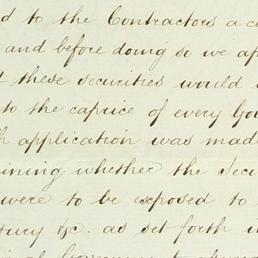 d to the Contractors a c
and before doing so we ap
these securities would
to the caprice of every Go
h application was made
ining whether the Secu
were to be exposed to
tury &c. as set forth i